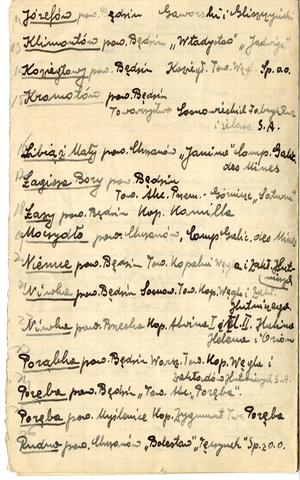 Józefów pow. Będzin Gaworski i Bliszczyński
Klimontów pow. Będzin „Władysław" „Jadwiga"
Koziegłowy pow. Będzin Kozigł. Tow. Węg. Sp. z o.o.
15 Kromołów pow. Będzin
Towarzystwo Sosnowieckich Fabryk Rur
i żelaza S.A.
16 Libiąż Mały pow. Chrzanów „Janina" Comp. Galic.
des Mines
17 Łagisza Bory pow. Będzin
Tow. Akc. Przem. - Górnicze „Saturn"
18 Łazy pow. Będzin Kop. Kamilla
19 Moczydło pow. Chrzanów, Comp. Galic. des Mines
20 Niemce pow. Będzin Tow. Kopalni Węgla i Zakł. Hutniczych
21 Niwka pow. Będzin Sosnow. Tow. Kop. Węgla i Zakł.
Hutniczego
Niwka pow. Kop. Alwina I i II. Halina
Helena i Orion
Porąbka pow. Będzin Warsz. Tow. Kop. Węgla i
Zakładów Hutniczych S.A.
Poręba pow. Będzin „Tow. Akc. „Poręba".
Poręba pow. Myślenice Kop. Zygmunt Twa Poręba
26 Rudno pow. Chrzanów „Bolesław" „Tęczynek" Sp. z o.o.